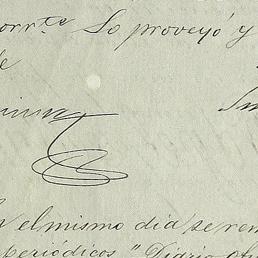 corr.te Lo proveyó y
el mismo dia se rem
periódicos "Diario ofi